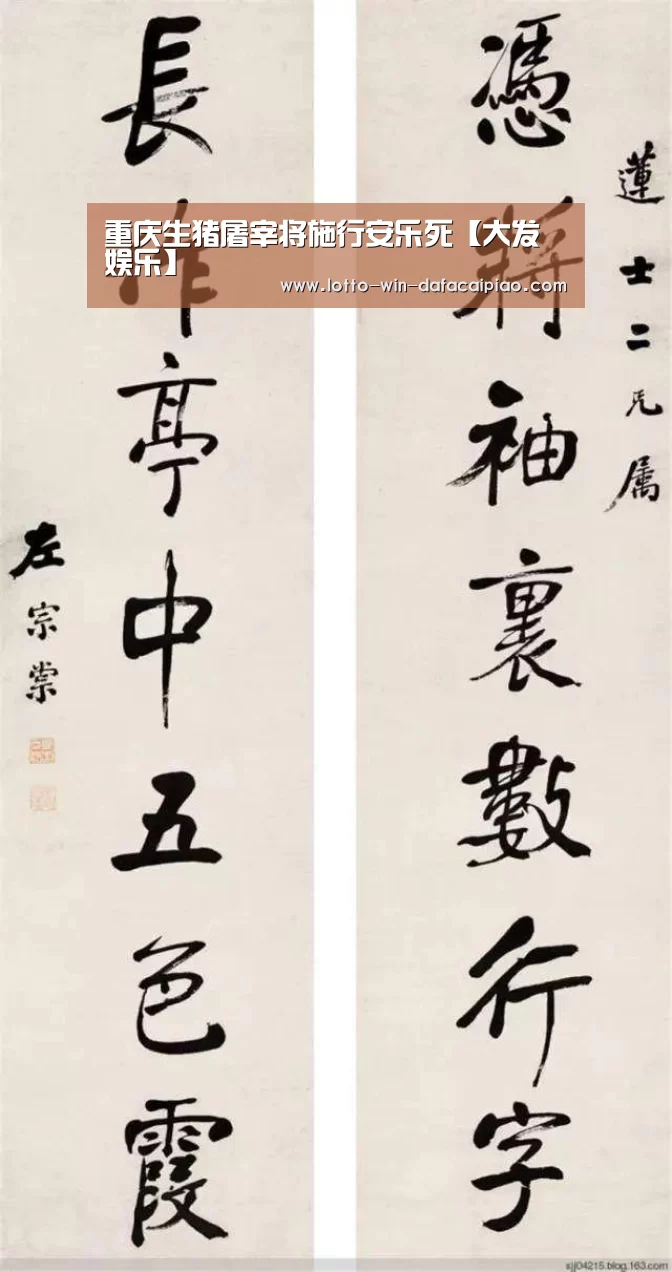 蓮士二兄属
憑將袖裏數行字
長作亭中五色霞
左宗棠
重庆生猪屠宰将施行安乐死【大发
娱乐】
www.lotto-win-dafacaipiao.com
sjj04215.blog.163.com